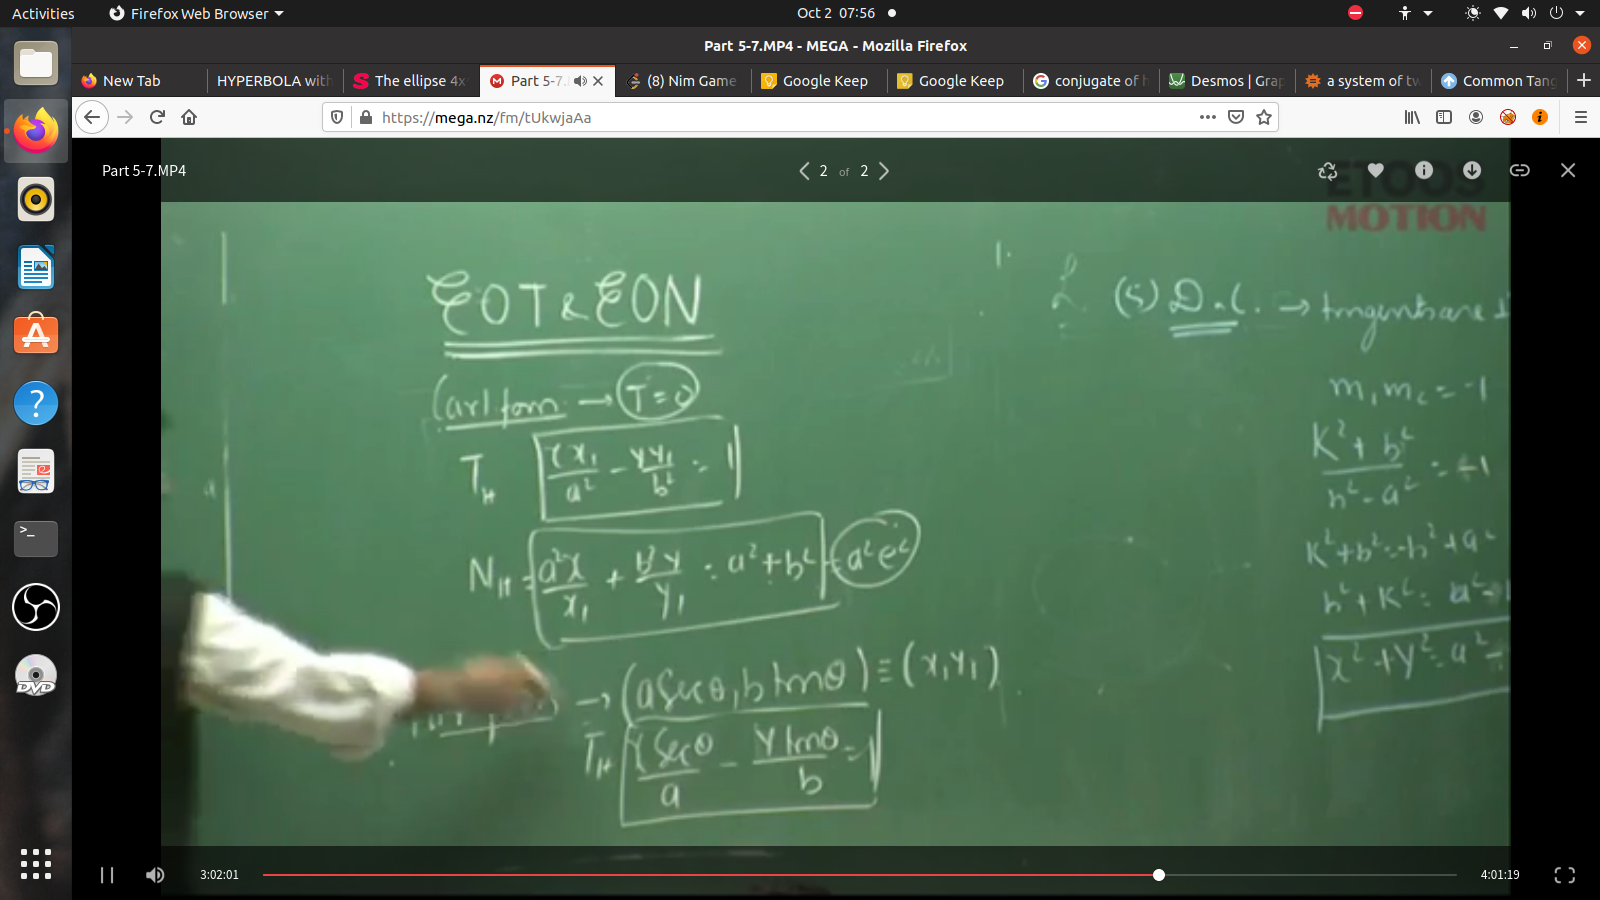 Activities
Firefox Web Browser
Oct 2 07:56
Part 5-7.MP4 - MEGA - Mozilla Firefox
New Tab
HYPERBOLA with
The ellipse 4x
Part 5-7.
(8) Nim Game
Google Keep
Google Keep
conjugate of h
Desmos | Grap
a system of tw
Common Tang
https://mega.nz/fm/tUkwjaAa
Part 5-7.MP4
2 of 2
ETOOS
MOTION
EOT & EON
Cart form → T = 0
T_H xx₁/a² - yy₁/b² = 1
N_H = a²x/x₁ + b²y/y₁ = a² + b² = a²e²
→ (a secθ, b tanθ) ≡ (x₁y₁)
T_H x secθ/a - y tanθ/b = 1
1.
(5) D.C. → tangents are
m₁m₂ = -1
K² + b²/h² - a² = -1
K² + b² = -h² + a²
h² + K² = a² -
x² + y² = a² -
3:02:01
4:01:19
>_
?
DVD